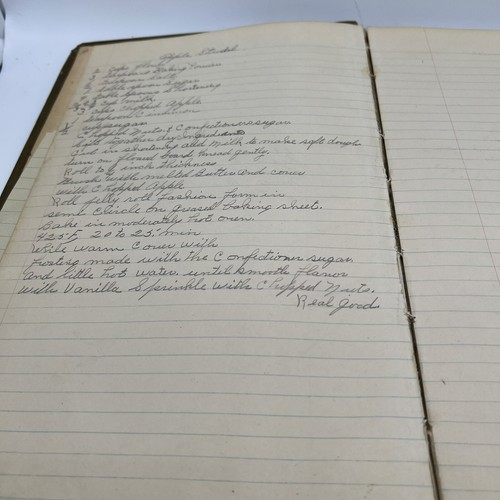 Apple Strudel
2 Cups Flour
3 teaspoons Baking Powder
teaspoon Salt
2 table spoon Sugar
table spoons Shortening
Cup milk
3 cups Chopped Apple
teaspoon Cinnamon
cup sugar
Chopped Nuts & Confectioners sugar
Sift together dry Ingredients
Cut in shortening add Milk to make soft dough
turn on floured board knead gently
Roll to ¼ inch thickness
Brush with melted Butter and cover
with Chopped Apple
Roll jelly roll fashion form in
semi Circle on greased baking sheet.
Bake in moderately hot oven
425°F 20 to 25 min
While warm Cover with
Frosting made with the Confectioner sugar
and little hot water until smooth flavor
with Vanilla Sprinkle with Chopped Nuts.
Real good